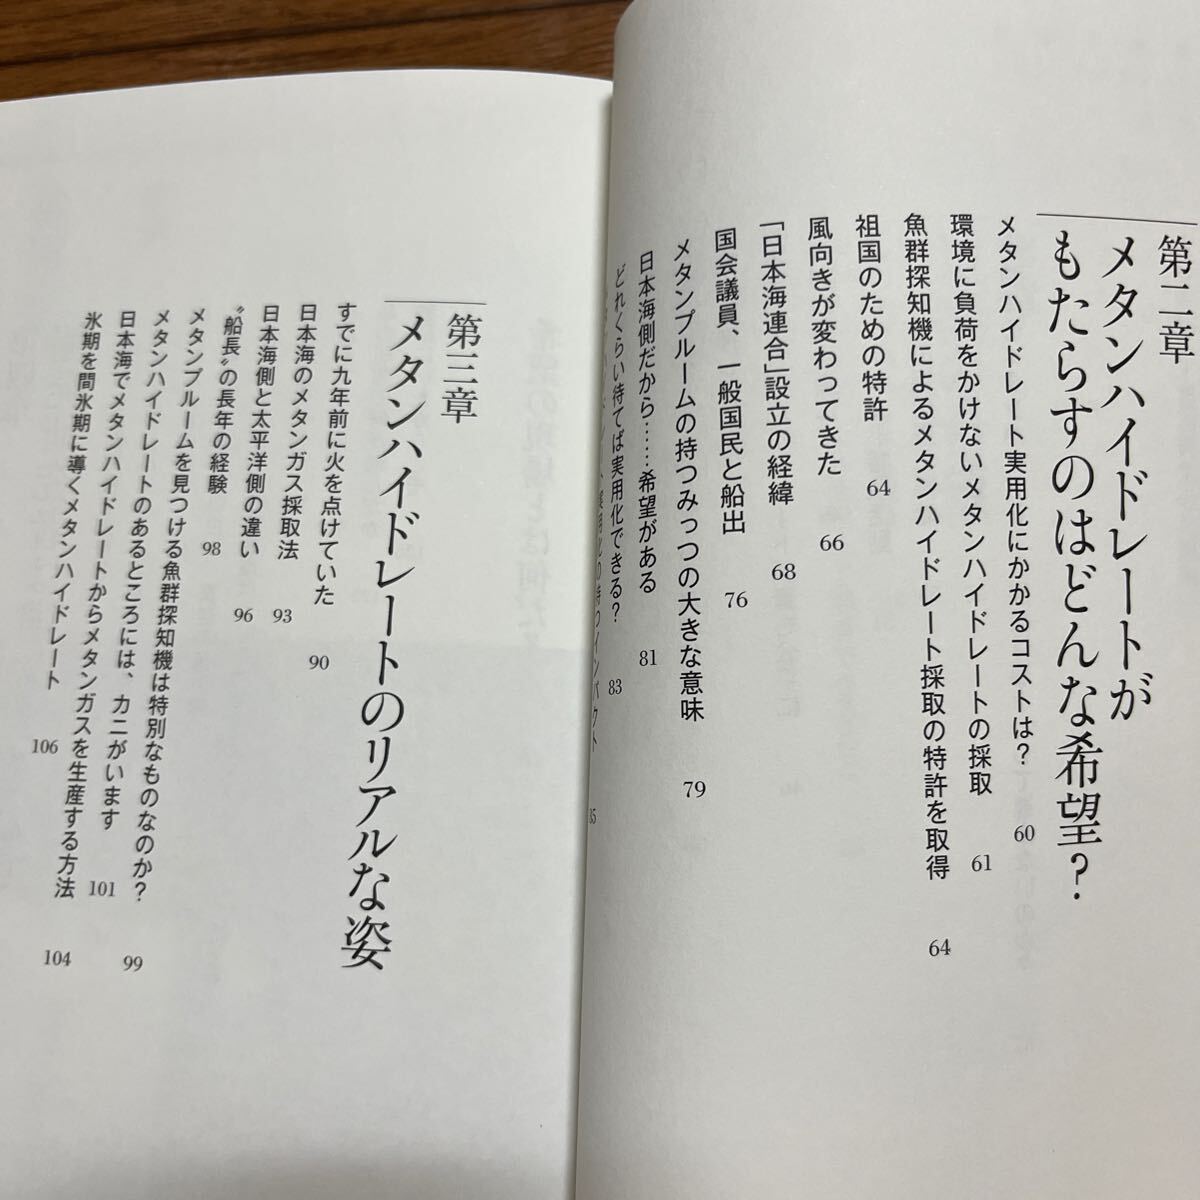 第二章
メタンハイドレートが
もたらすのはどんな希望?
メタンハイドレート実用化にかかるコストは? 60
環境に負荷をかけないメタンハイドレートの採取 61
魚群探知機によるメタンハイドレート採取の特許を取得 64
祖国のための特許 64
風向きが変わってきた 66
「日本海連合」設立の経緯 68
国会議員、一般国民と船出 76
メタンプルームの持つみっつの大きな意味 79
日本海側だから……希望がある 81
どれくらい待てば実用化できる? 83
の持つインパクト
第三章
メタンハイドレートのリアルな姿
すでに九年前に火を点けていた 90
日本海のメタンガス採取法 93
日本海側と太平洋側の違い 96
〝船長〟の長年の経験 98
メタンプルームを見つける魚群探知機は特別なものなのか? 99
メタンハイドレートのあるところには、カニがいます 101
日本海でメタンハイドレートからメタンガスを生産する方法 104
氷期を間氷期に導くメタンハイドレート 106